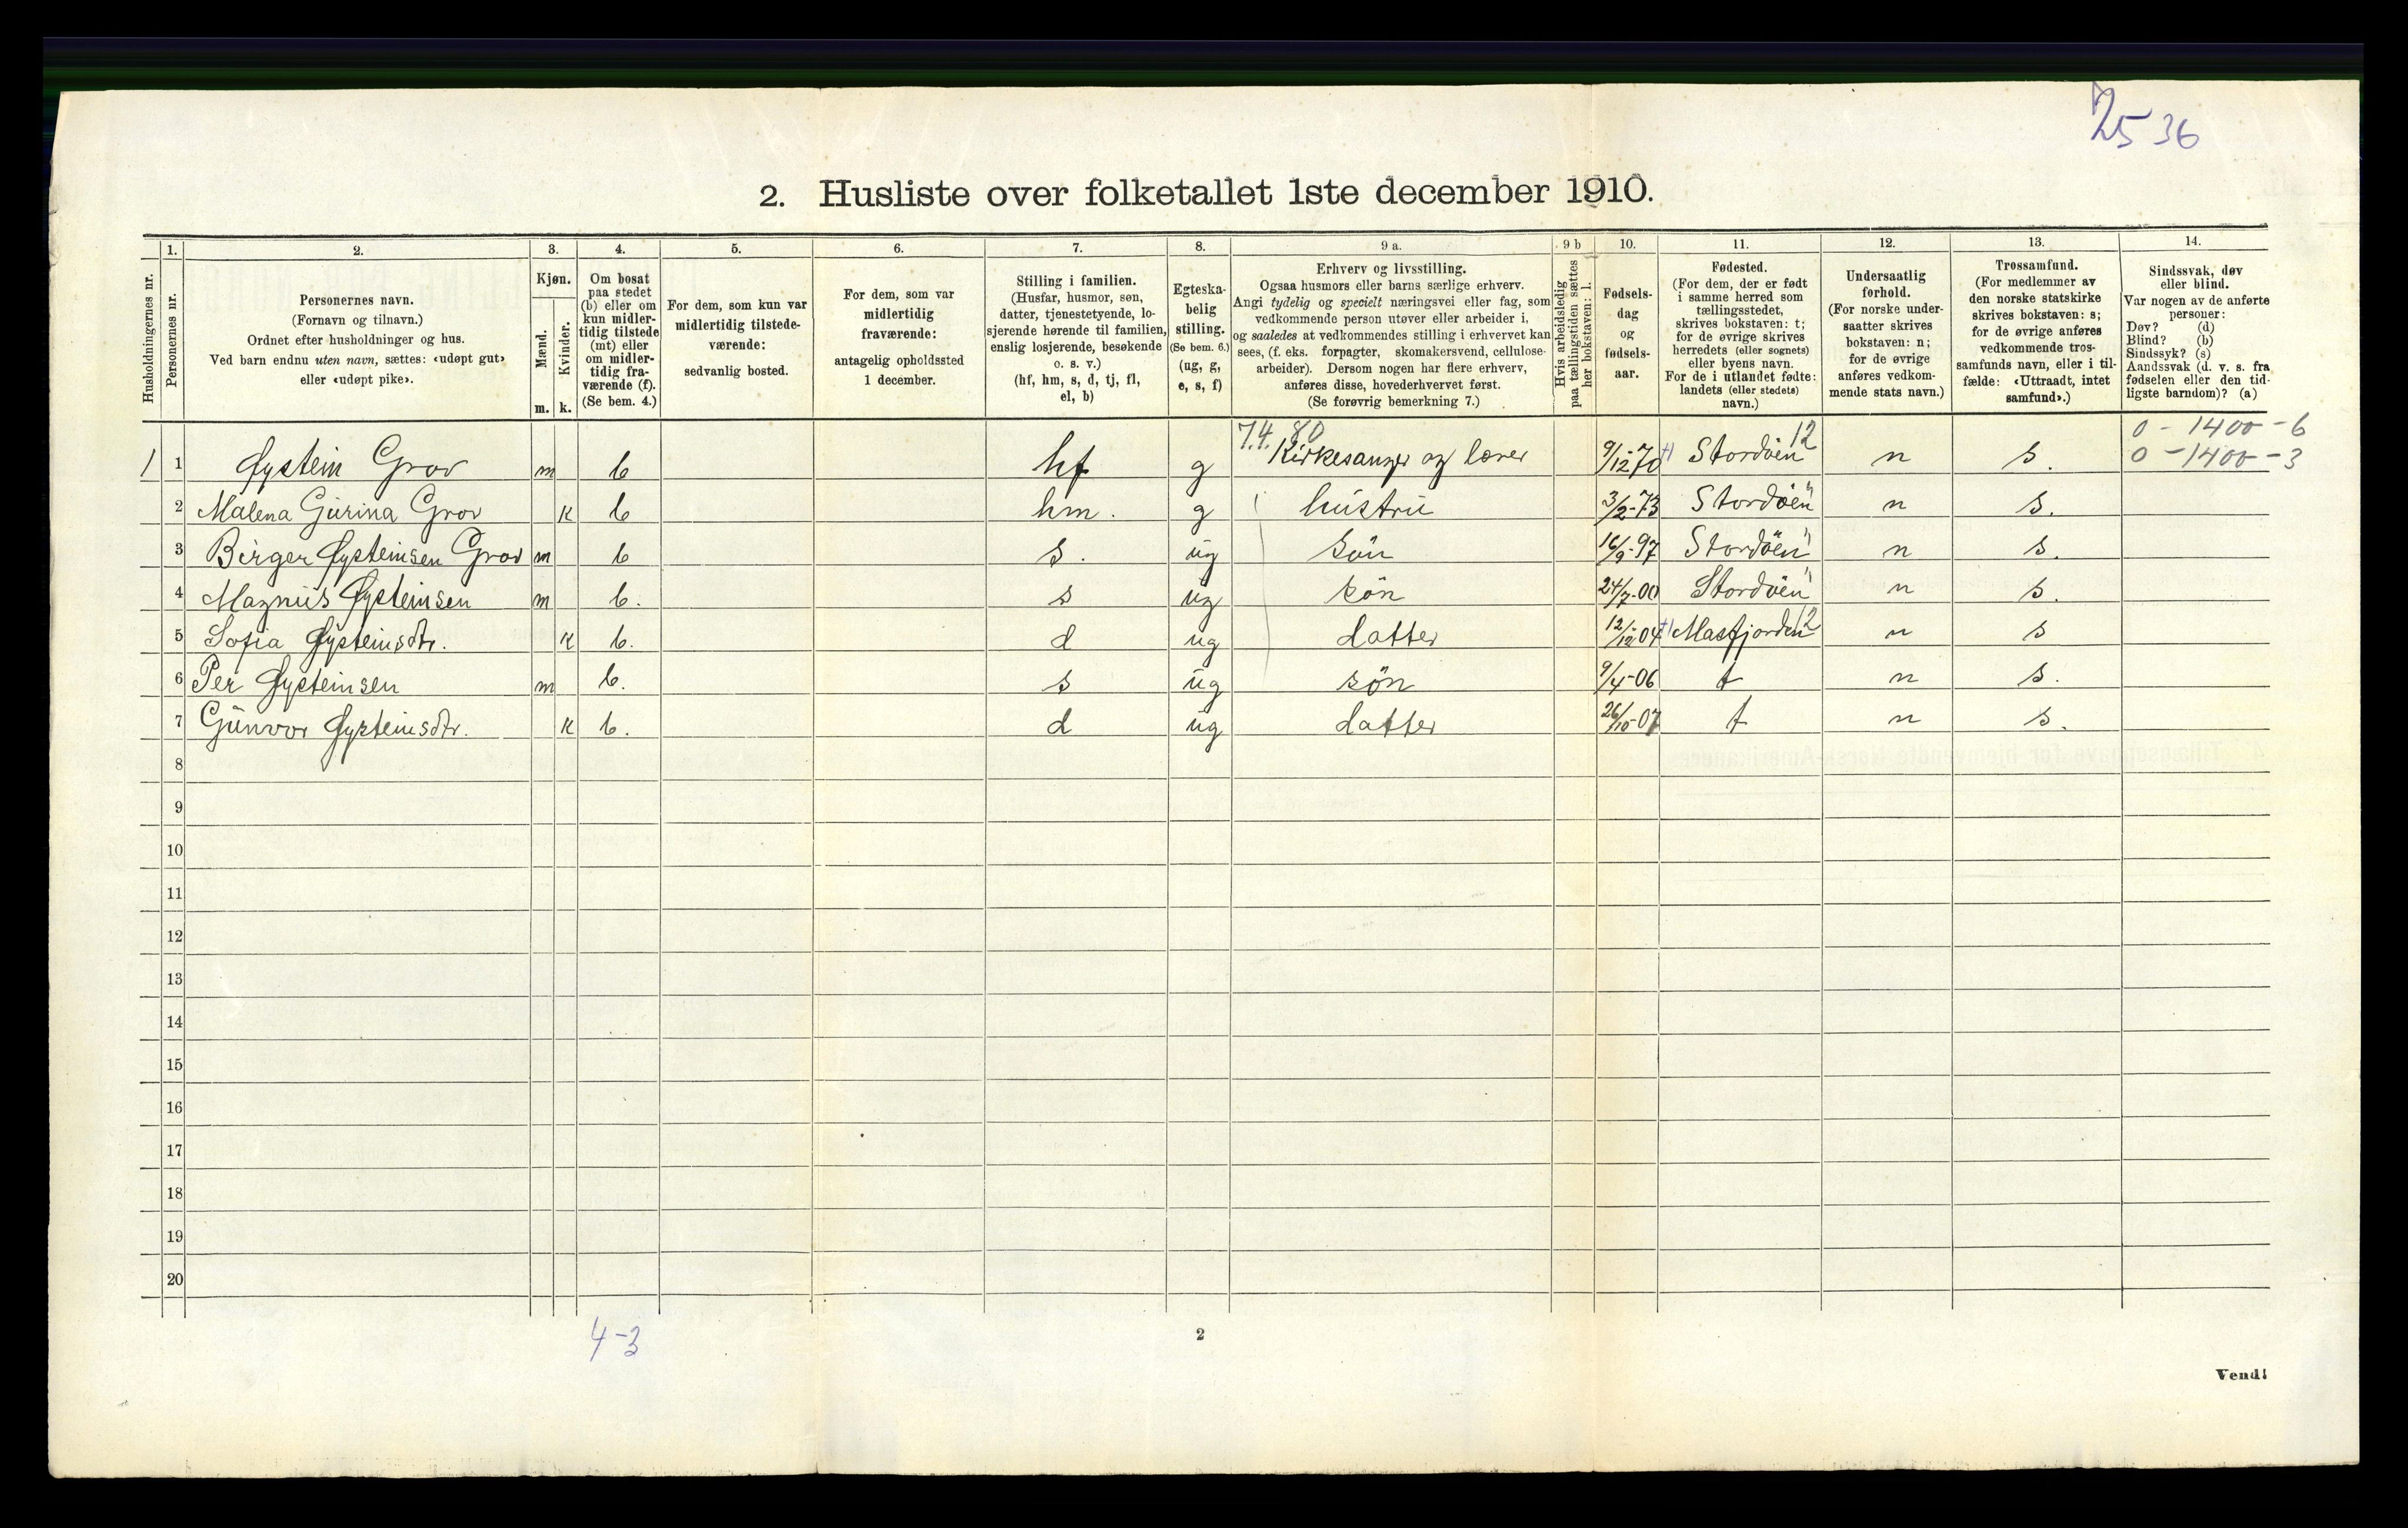 25 36
2. Husliste over folketallet 1ste december 1910.
Husholdningernes nr.
1.
Personernes nr.
2.
Personernes navn.
(Fornavn og tilnavn.)
Ordnet efter husholdninger og hus.
Ved barn endnu uten navn, sættes: «udøpt gut»
eller «udøpt pike».
3.
Kjøn.
Mænd.
Kvinder.
m. k.
4.
Om bosat
paa stedet
(b) eller om
kun midler-
tidig tilstede
(mt) eller
om midler-
tidig fra-
værende (f).
(Se bem. 4.)
5.
For dem, som kun var
midlertidig tilstede-
værende:
sedvanlig bosted.
6.
For dem, som var
midlertidig
fraværende:
antagelig opholdssted
1 december.
7.
Stilling i familien.
(Husfar, husmor, søn,
datter, tjenestetyende, lo-
sjerende hørende til familien,
enslig losjerende, besøkende
o. s. v.)
(hf, hm, s, d, tj, fl,
el, b)
8.
Egteska-
belig
stilling.
(Se bem. 6.)
(ug, g,
e, s, f)
9 a.
Erhverv og livsstilling.
Ogsaa husmors eller barns særlige erhverv.
Angi tydelig og specielt næringsvei eller fag, som
vedkommende person utøver eller arbeider i,
og saaledes at vedkommendes stilling i erhvervet kan
sees, (f. eks. forpagter, skomakersvend, cellulose-
arbeider). Dersom nogen har flere erhverv,
anføres disse, hovederhvervet først.
(Se forøvrig bemerkning 7.)
9 b
Hvis arbeidsledig
paa tællingstiden sættes
her bokstaven: l.
10.
Fødsels-
dag
og
fødsels-
aar.
11.
Fødested.
(For dem, der er født
i samme herred som
tællingsstedet,
skrives bokstaven: t;
for de øvrige skrives
herredets (eller sognets)
eller byens navn.
For de i utlandet fødte:
landets (eller stedets)
navn.)
12.
Undersaatlig
forhold.
(For norske under-
saatter skrives
bokstaven: n;
for de øvrige
anføres vedkom-
mende stats navn.)
13.
Trossamfund.
(For medlemmer av
den norske statskirke
skrives bokstaven: s;
for de øvrige anføres
vedkommende tros-
samfunds navn, eller i til-
fælde: «Uttraadt, intet
samfund».)
14.
Sindssvak, døv
eller blind.
Var nogen av de anførte
personer:
Døv? (d)
Blind? (b)
Sindssyk? (s)
Aandssvak (d. v. s. fra
fødselen eller den tid-
ligste barndom)? (a)
7.4. 80 12 0 - 1400 - 6
1 1 Øystein Grov m b hf g Kirkesanger og lærer 9/12-70 Stordöen n s. 0 - 1400 - 3
2 Malena Gurina Grov k b hm. g hustru 3/2-73 Stordöen n s.
3 Birger Øysteinsen Grov m b s. ug sön 16/9-97 Stordöen n s.
4 Magnus Øysteinsen m b. s ug sön 24/7-00 Stordöen n s.
5 Sofia Øysteinsdtr. k b. d ug datter 12/12-04 Masfjorden 12 n s
6 Per Øysteinsen m b. s ug sön 9/4-06 t n s.
7 Gunvor Øysteinsdtr. k b. d ug datter 26/10-07 t n s.
8
9
10
11
12
13
14
15
16
17
18
19
20
4-3
2
Vend!